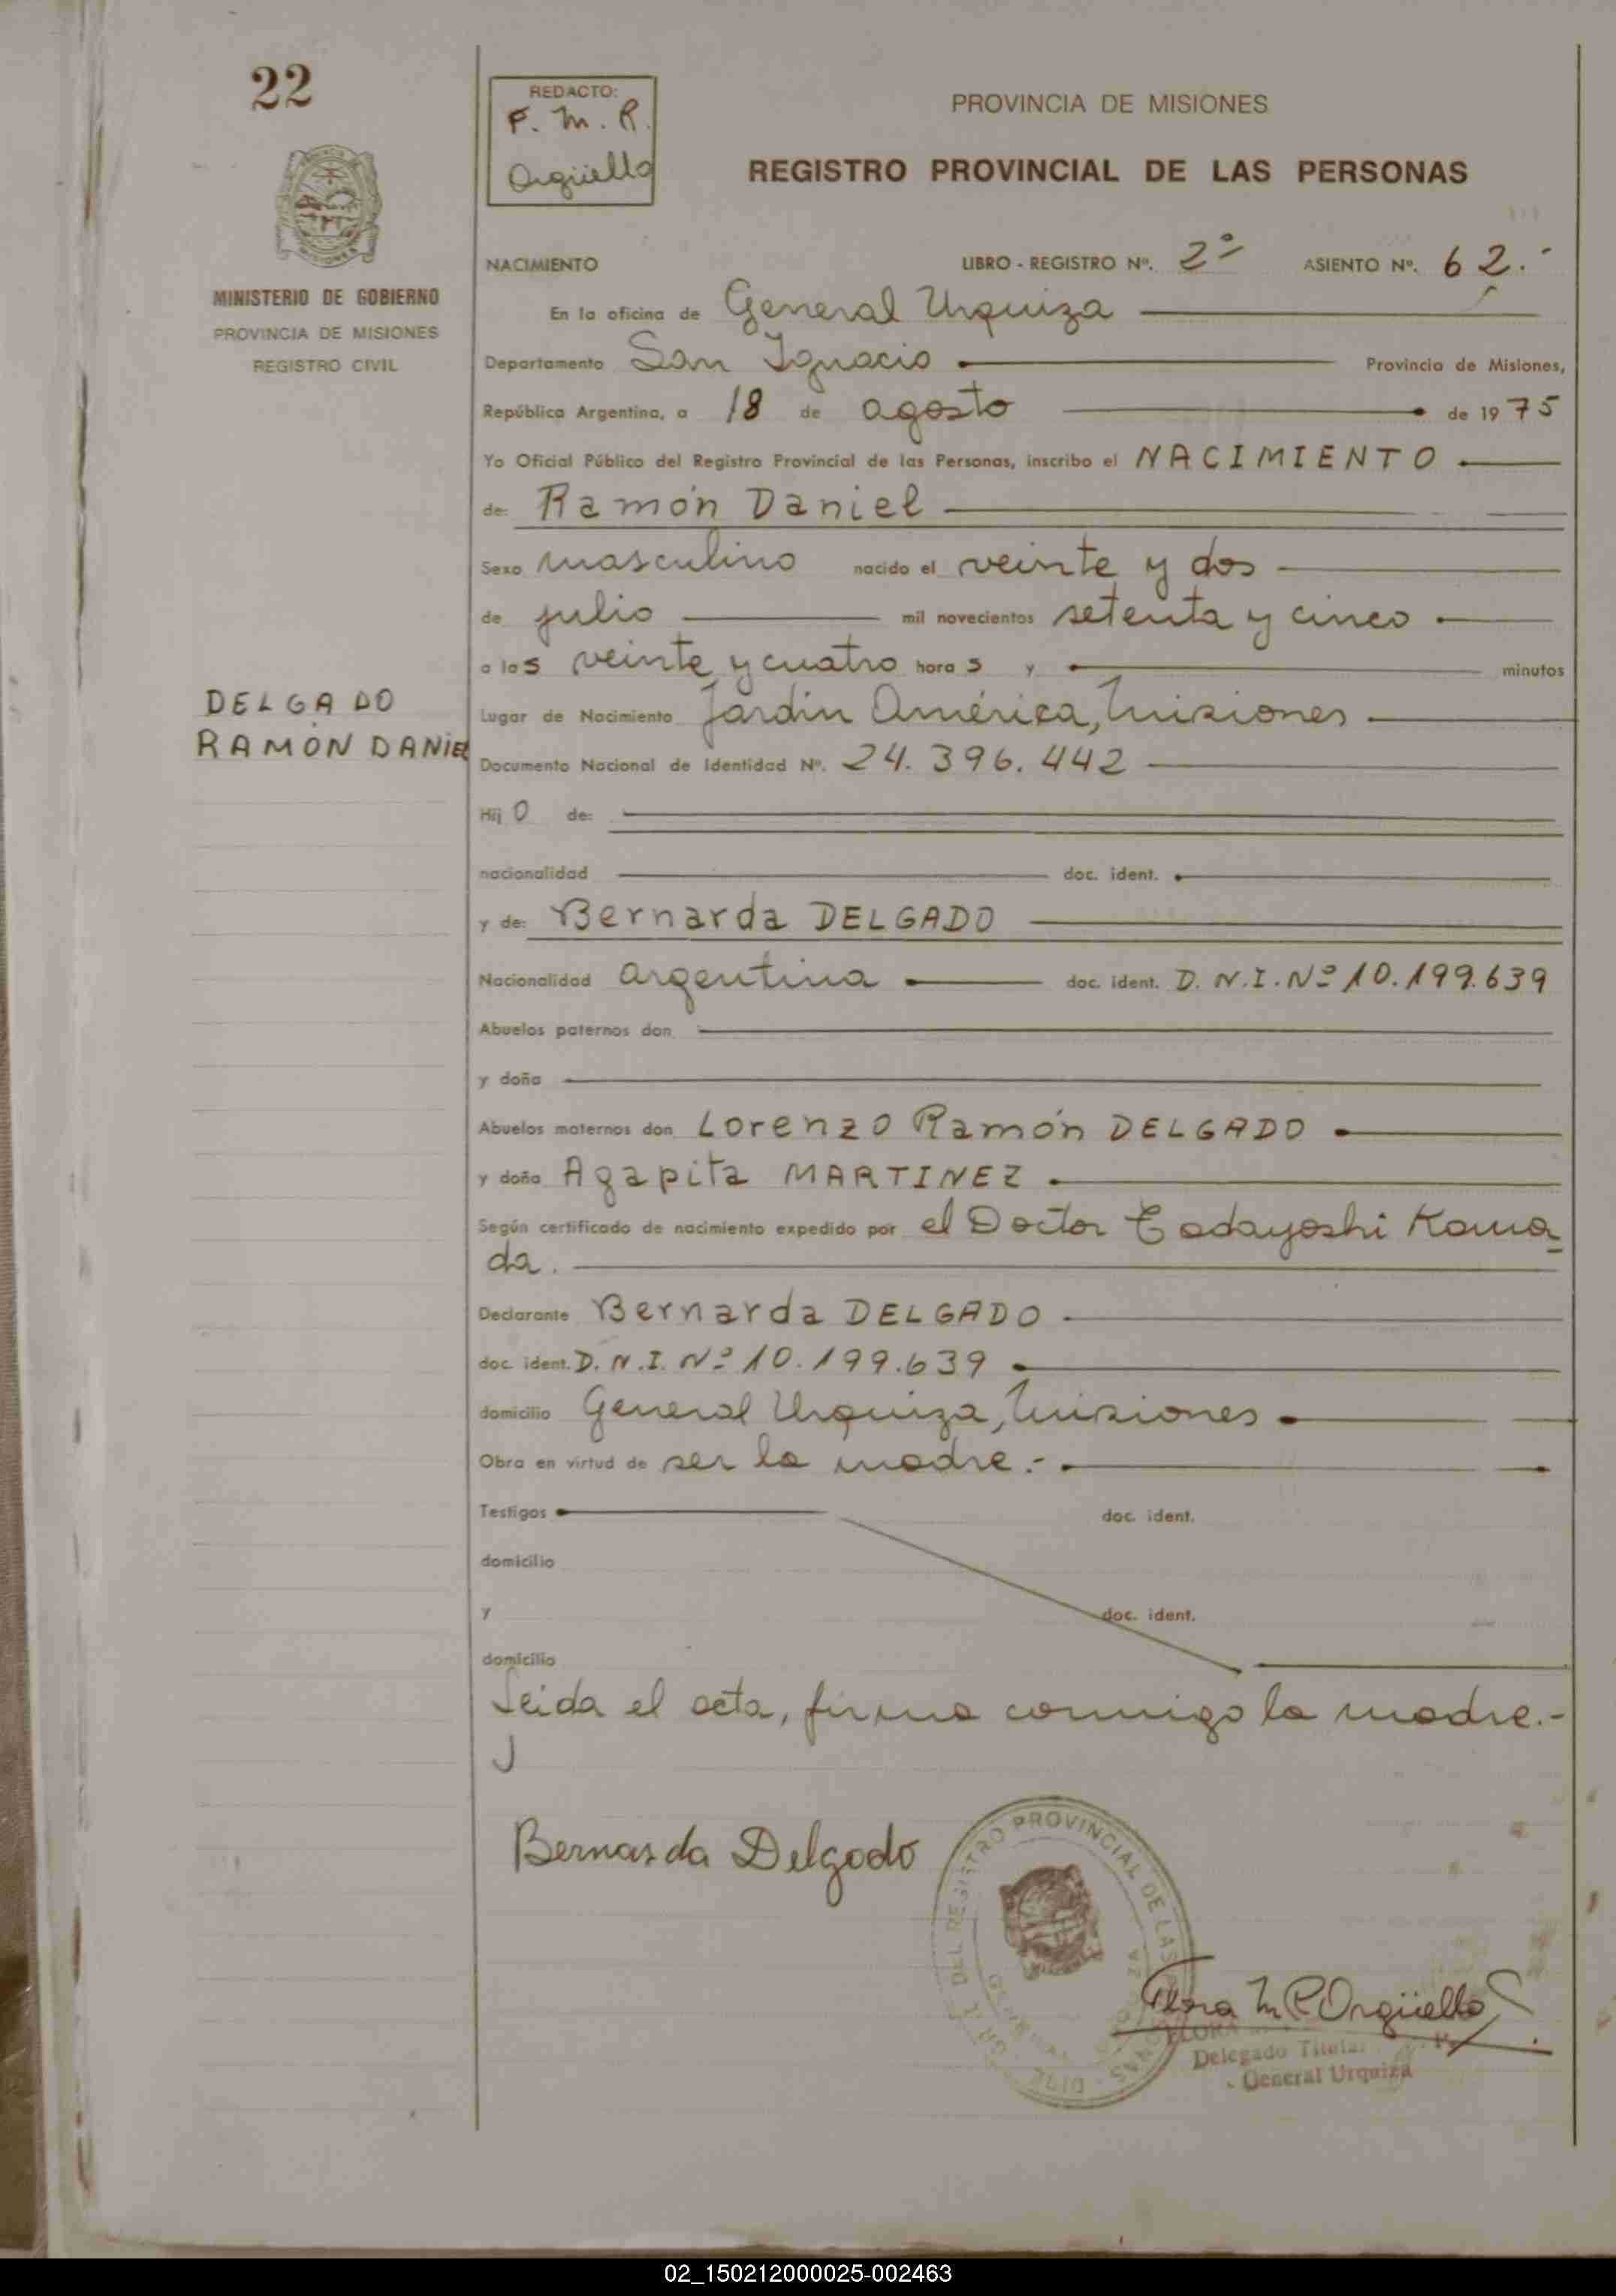 22
REDACTO:
F. M. R.
Orgüello
PROVINCIA DE MISIONES
REGISTRO PROVINCIAL DE LAS PERSONAS
MINISTERIO DE GOBIERNO
PROVINCIA DE MISIONES
REGISTRO CIVIL
NACIMIENTO LIBRO - REGISTRO Nº. 2º ASIENTO Nº. 62.-
En la oficina de General Urquiza
Departamento San Ignacio Provincia de Misiones,
República Argentina, a 18 de agosto de 1975
Yo Oficial Público del Registro Provincial de las Personas, inscribo el NACIMIENTO
de: Ramón Daniel
Sexo masculino nacido el veinte y dos
de julio mil novecientos setenta y cinco
a las veinte y cuatro horas y minutos
DELGADO
RAMÓN DANIEL
Lugar de Nacimiento Jardin América, Misiones
Documento Nacional de Identidad Nº. 24.396.442
Hijo de:
nacionalidad doc. ident.
y de: Bernarda DELGADO
Nacionalidad argentina doc. ident. D.N.I.Nº 10.199.639
Abuelos paternos don
y doña
Abuelos maternos don Lorenzo Ramón DELGADO
y doña Agapita MARTINEZ
Según certificado de nacimiento expedido por el Doctor Tadayoshi Kama
da.
Declarante Bernarda DELGADO
doc. ident. D.N.I. Nº 10.199.639
domicilio General Urquiza, Misiones
Obra en virtud de ser la madre.-
Testigos doc. ident.
domicilio
y doc. ident.
domicilio
Leida el acta, firma conmigo la madre.-
Bernarda Delgado
DEL REGISTRO PROVINCIAL DE LAS
Flora M. R. Orgüello
FLORA
Delegado Titular
General Urquiza
02_150212000025-002463